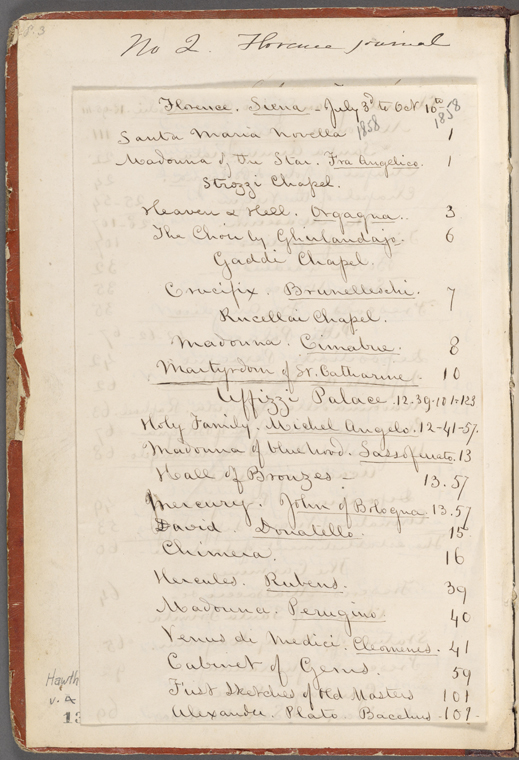 8.3
No 2. Florence journal
Florence. Siena - July 3d to Oct 10th 1858
1858
Santa Maria Novella 1
Madonna of the Star. Fra Angelico. 1
Strozzi Chapel.
Heaven & Hell. Orgagna.. 3
The Choir by Ghirlandajo. 6
Gaddi Chapel.
Crucifix. Brunelleschi. 7
Rucellai Chapel.
Madonna. Cimabue. 8
Martyrdom of St. Catharine. 10
Uffizzi Palace. 12.39-101-123
Holy Family. Michel Angelo. 12-41-57.
Madonna of blue hood. Sassoferato. 13
Hall of Bronzes - 13.57
Mercury. John of Bologna. 13.57
David. Donatello. 15
Chimera. 16
Hercules. Rubens. 39
Madonna. Perugino. 40
Venus di Medici. Cleomenes. 41
Cabinet of Gems. 59
First Sketches of Old Masters 101
Alexander. Plato. Bacchus - 107-
Hawth
v. 4